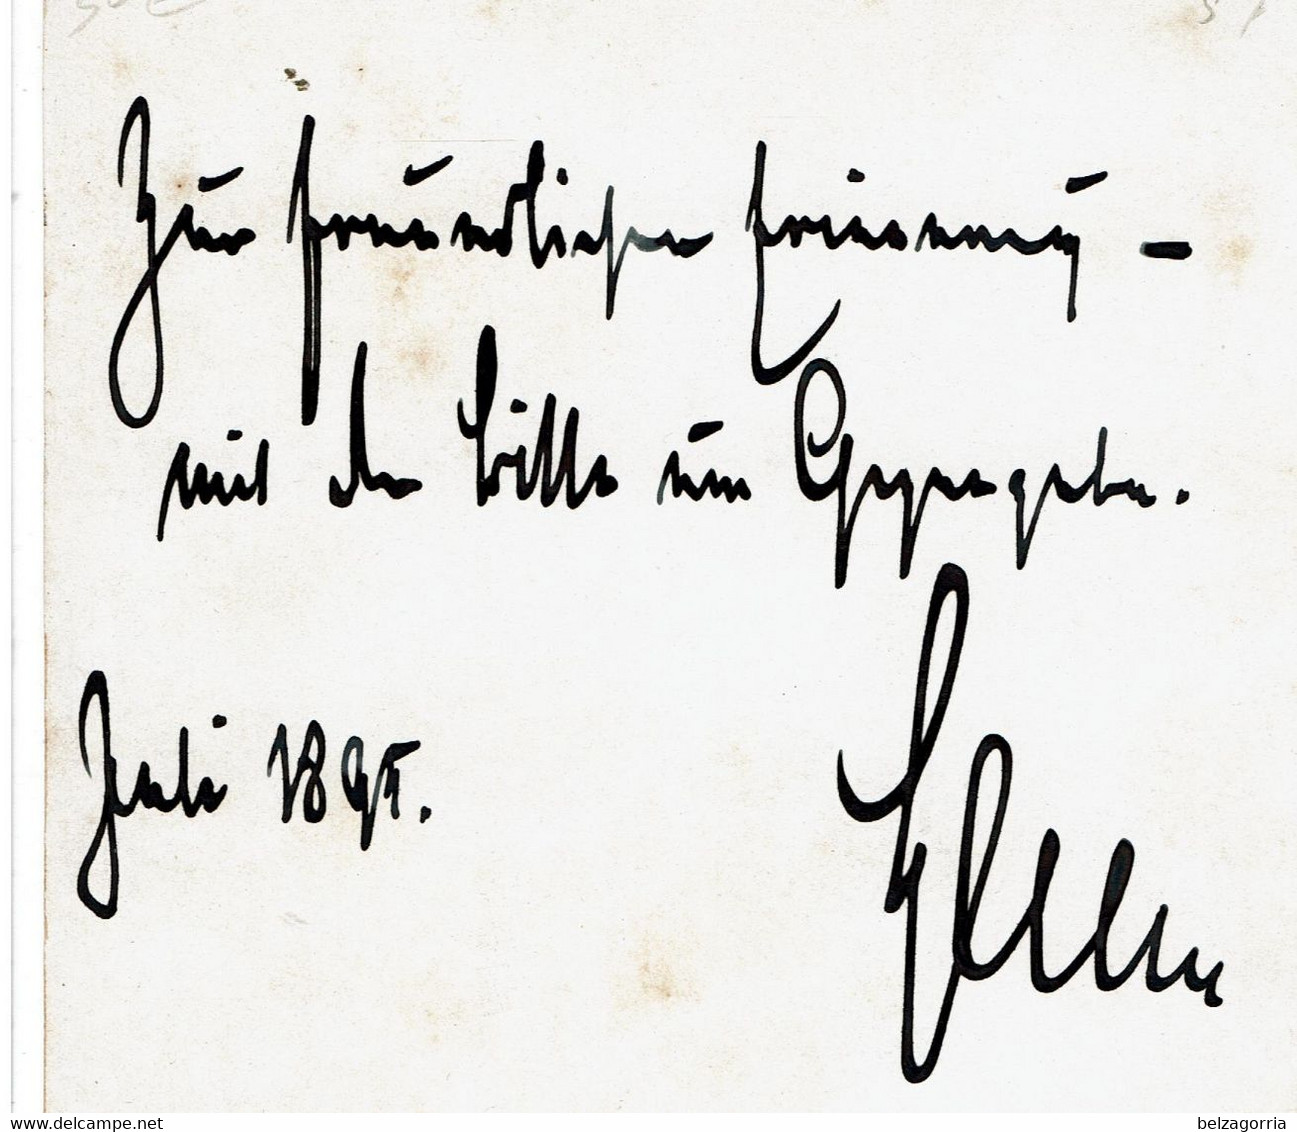 Zur freundlichen Erinnerung –
mit der Bitte um Gegengabe.
Juli 1895.
delcampe.net
belzagorria